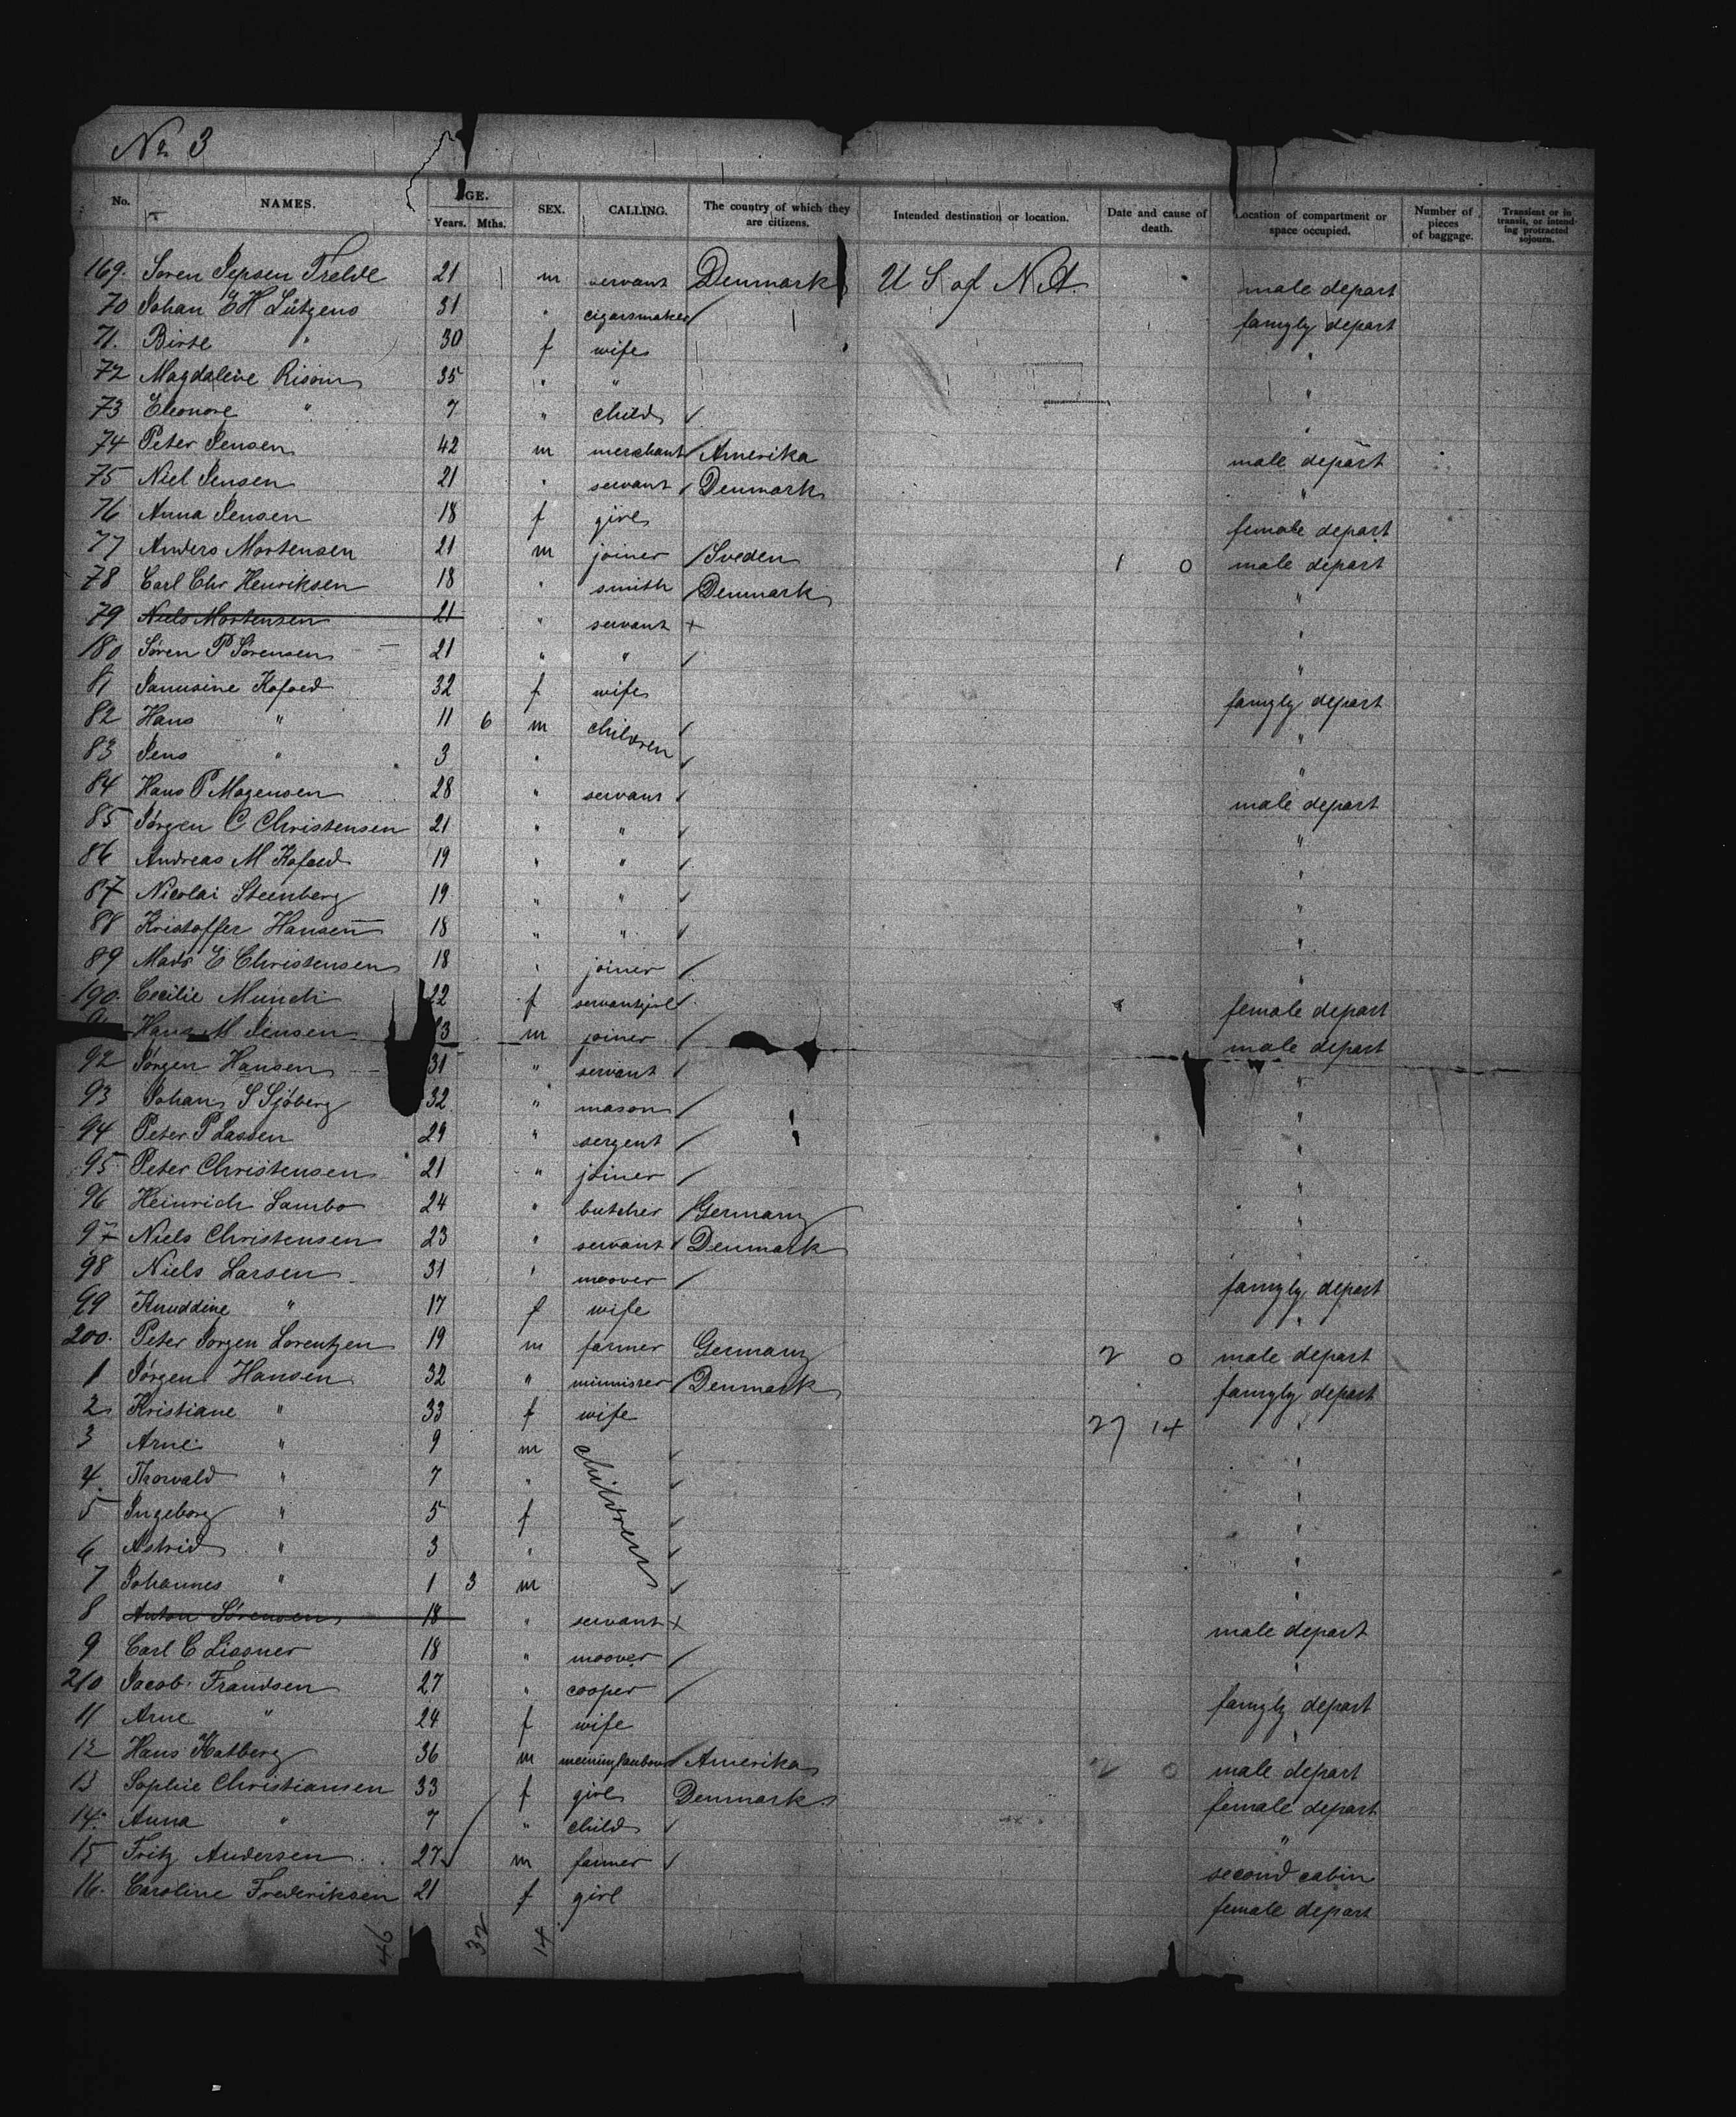 No 3
No. NAMES. AGE. Years. Mths. SEX. CALLING. The country of which they are citizens. Intended destination or location. Date and cause of death. Location of compartment or space occupied. Number of pieces of baggage. Transient or in transit, or intending protracted sojourn.
169. Soren Jepsen 21 m servant Denmark U S of N A. male depart
70 Johan E H Lütgens 31 " cigarsmaker / famyly depart
71. Birte " 30 f wife "
72 Magdalene Risom 35 " " "
73 Eleonore " 7 " child / "
74 Peter Jensen 42 m merchant / Amerika male depart
75 Niel Jensen 21 " servant / Denmark "
76 Anna Jensen 18 f girl female depart
77 Anders Mortensen 21 m joiner / Sveden 1 0 male depart
78 Carl Chr Henriksen 18 " smith / Denmark "
79 Niels Mortensen 21 " servant + "
180 Sören P Sörensen 21 " " / "
81 Kofoed 32 f wife famyly depart
82 Hans " 11 6 m children / "
83 Jens " 3 " / "
84 Hans P Mogensen 28 " servant / male depart
85 Jörgen C Christensen 21 " " / "
86 Andreas M Kofoed 19 " " / "
87 Nicolai Steenberg 19 " " / "
88 Kristoffer Hansen 18 " " / "
89 Mads E Christensen 18 " joiner / "
190. Cecilie Munch 22 f servantgirl / female depart
Hans M Jensen 3 m joiner / male depart
92 Jörgen Hansen 31 " servant / "
93 Johan S Sjöberg 32 " mason / "
94 Peter P Lassen 29 " sergent / "
95 Peter Christensen 21 " joiner / "
96 Heinrich Lambo 24 " butcher / Germany "
97 Niels Christensen 23 " servant / Denmark "
98 Niels Larsen 31 " moover / famyly depart
99 Knuddine " 17 f wife "
200. Peter Jorgen Lorentzen 19 m farmer Germany 2 0 male depart
1 Jörgen Hansen 32 " minnister / Denmark famyly depart
2 Kristiane " 33 f wife 27 14 "
3 Arne " 9 m children / "
4. Thorvald " 7 " / "
5 Ingeborg " 5 f / "
6 Astrid " 3 " / "
7 Johannes " 1 3 m / "
8 Anton Sörensen 18 " servant + male depart
9 Carl C Lissner 18 " moover / "
210 Jacob Frandsen 27 " cooper / famyly depart
11 Ane " 24 f wife "
12 Hans Katberg 36 m / Amerika 2 0 male depart
13 Sophie Christiansen 33 f girl Denmark female depart
14. Anna " 7 " child / "
15 Fritz Andersen 27 m farmer / second cabin
16. Caroline Frederiksen 21 f girl female depart
46 32 14